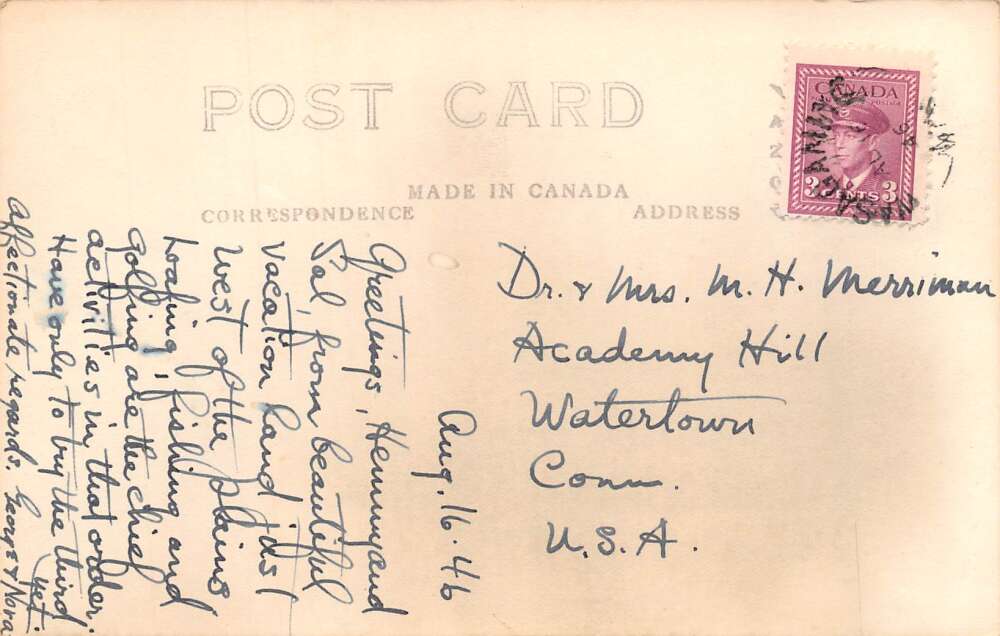 POST CARD
MADE IN CANADA
CORRESPONDENCE
ADDRESS
CANADA
POSTAGE
3 CENTS 3
WASAGAMING
46
Aug. 16. 46
Greetings, Henny and
Sal, from beautiful
vacation land, jds!
West of the plains
Loafing, fishing and
Golfing are the chief
activities in that order.
Have only to try the third yet.
Affectionate regards. George & Nora
Dr. & Mrs. M. H. Merriman
Academy Hill
Watertown
Conn.
U.S.A.